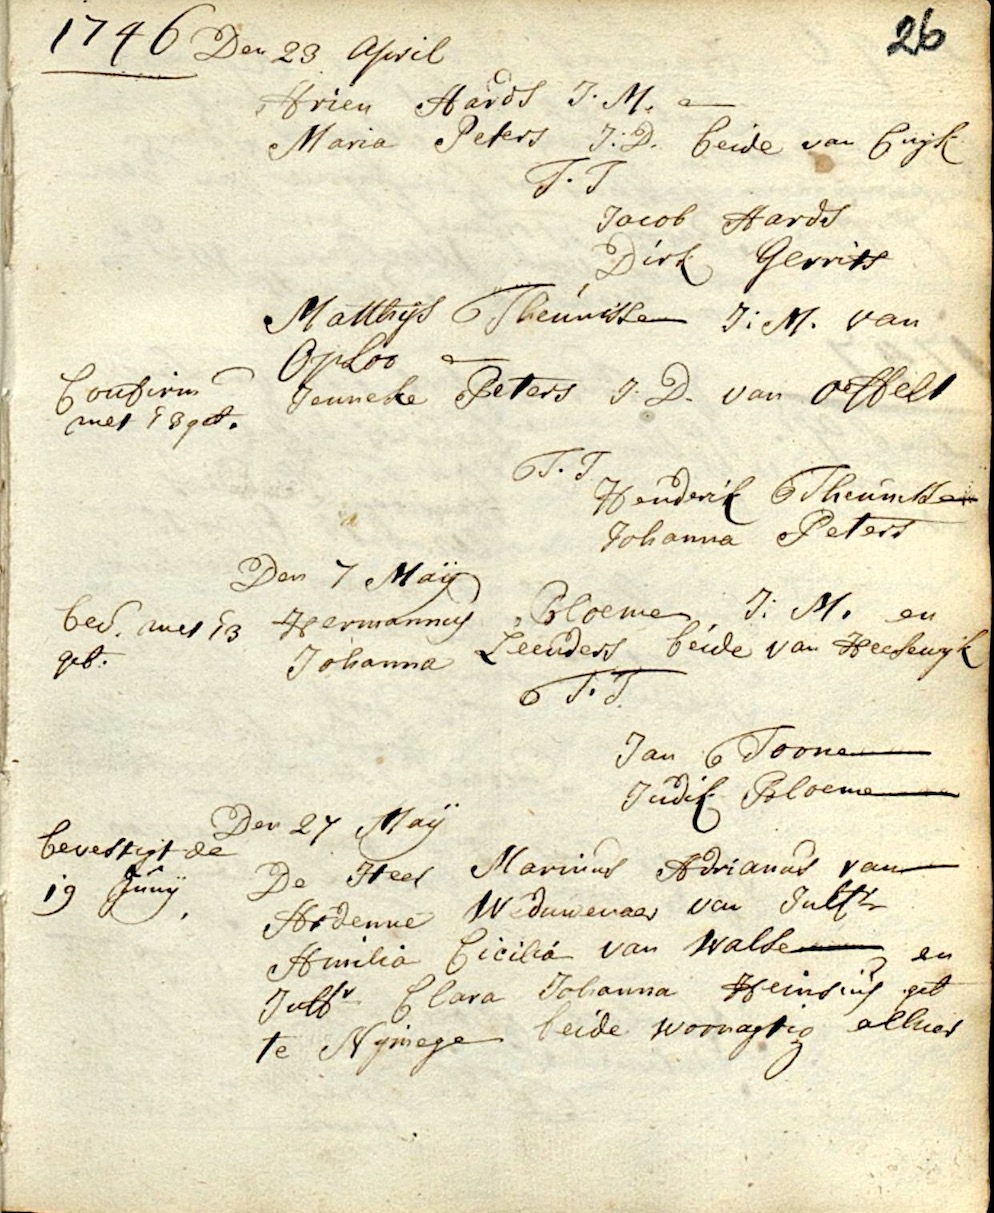 26
1746 Den 23 April
Arien Aards J. M.
Maria Peters J: D. beide van Cuijk
T. T
Jacob Aards
Dirk Gerrits
Matthijs Theunisse J: M. van
Oploo
Jenneke Peters J. D. van Oeffelt
Confirm
met
T. T
Henderik Theunisse
Johanna Peters
Den 7 Maÿ
Hermannus Bloeme J: M. en
Johanna Leenders beide van Heeswijk
met
get.
T. T.
Jan Toone
Judik Bloeme
Den 27 Maÿ
bevestigt de
19 Junÿ
De Heer Marinus Adrianus van
Ardenne Weduwenaer van Juffr
Amilia Cicilia van Walse en
Juffr Clara Johanna Heinsius get
te Nijmege beide woonagtig alhier